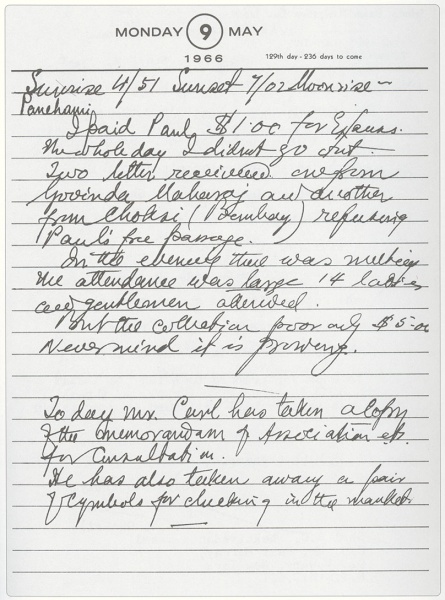 MONDAY 9 MAY
1966
129th day - 236 days to come
Sunrise 4/51 Sunset 7/02 Moonrise —
Panchami
I paid Paul, $1.00 for Expenses.
The whole day I did not go out.
Two letters received one from
Govinda Maharaj and another
from Choksi (Bombay) refusing
Paul's free passage.
In the evening there was meeting
the attendance was large 14 ladies
and gentlemen attended.
But the collection poor only $5.00
Never mind it is growing.
To day Mr. Carl has taken a copy
of the memorandum of Association etc.
for Consultation.
He has also taken away a pair
of Cymbols for checking in the market